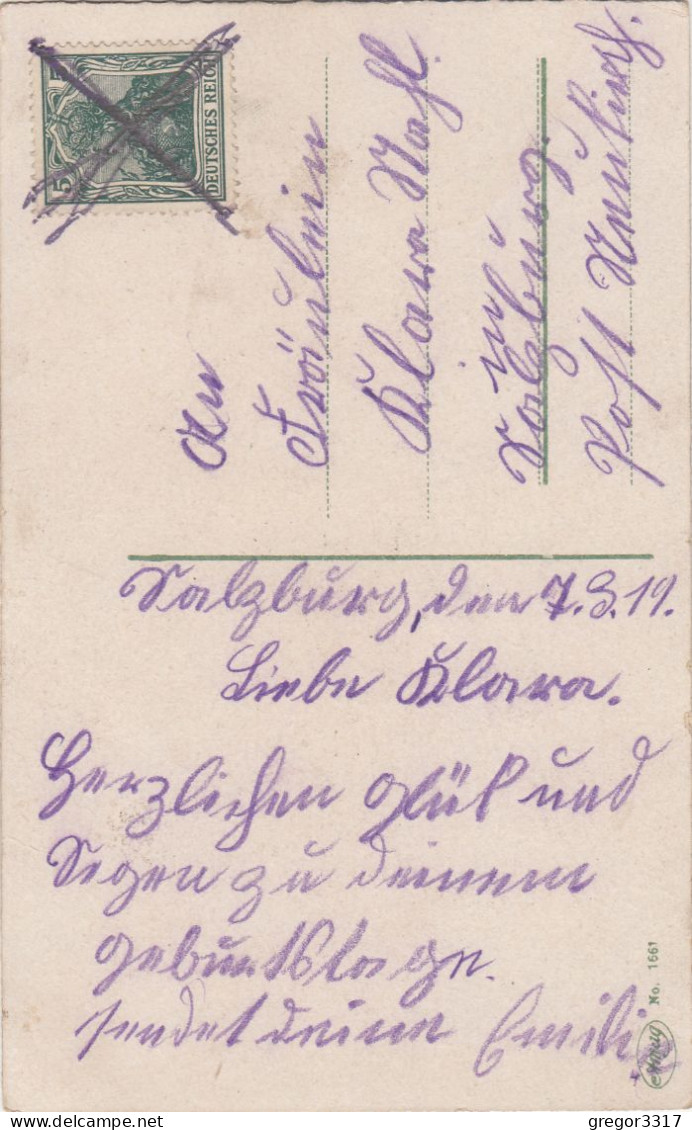 DEUTSCHES REICH
5 5
An
Fräulein
Klara Kohl.
in
Salzburg.
Post
Salzburg, den 7.3.19.
Liebe Klara.
Herzlichen glük und
Segen zu deinem
geburtstage.
sendet deine Emilie
No. 1661
gregor3317